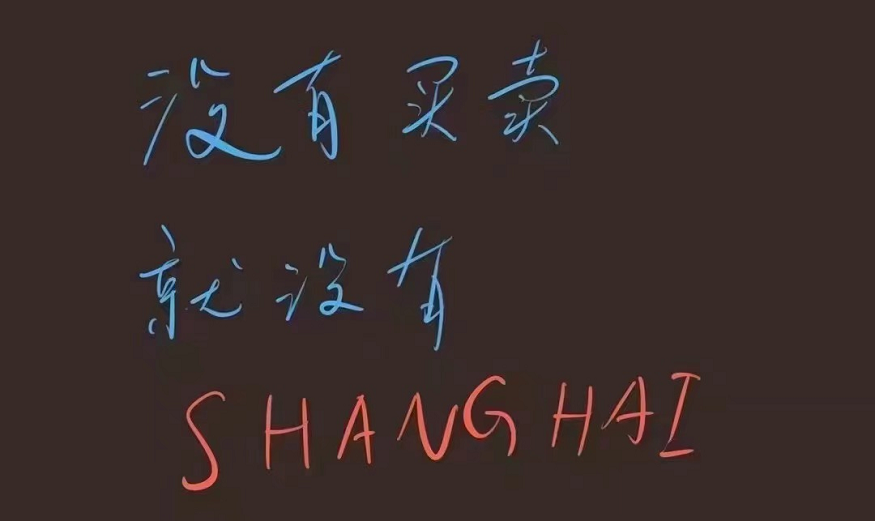 没有买卖
就没有
SHANGHAI